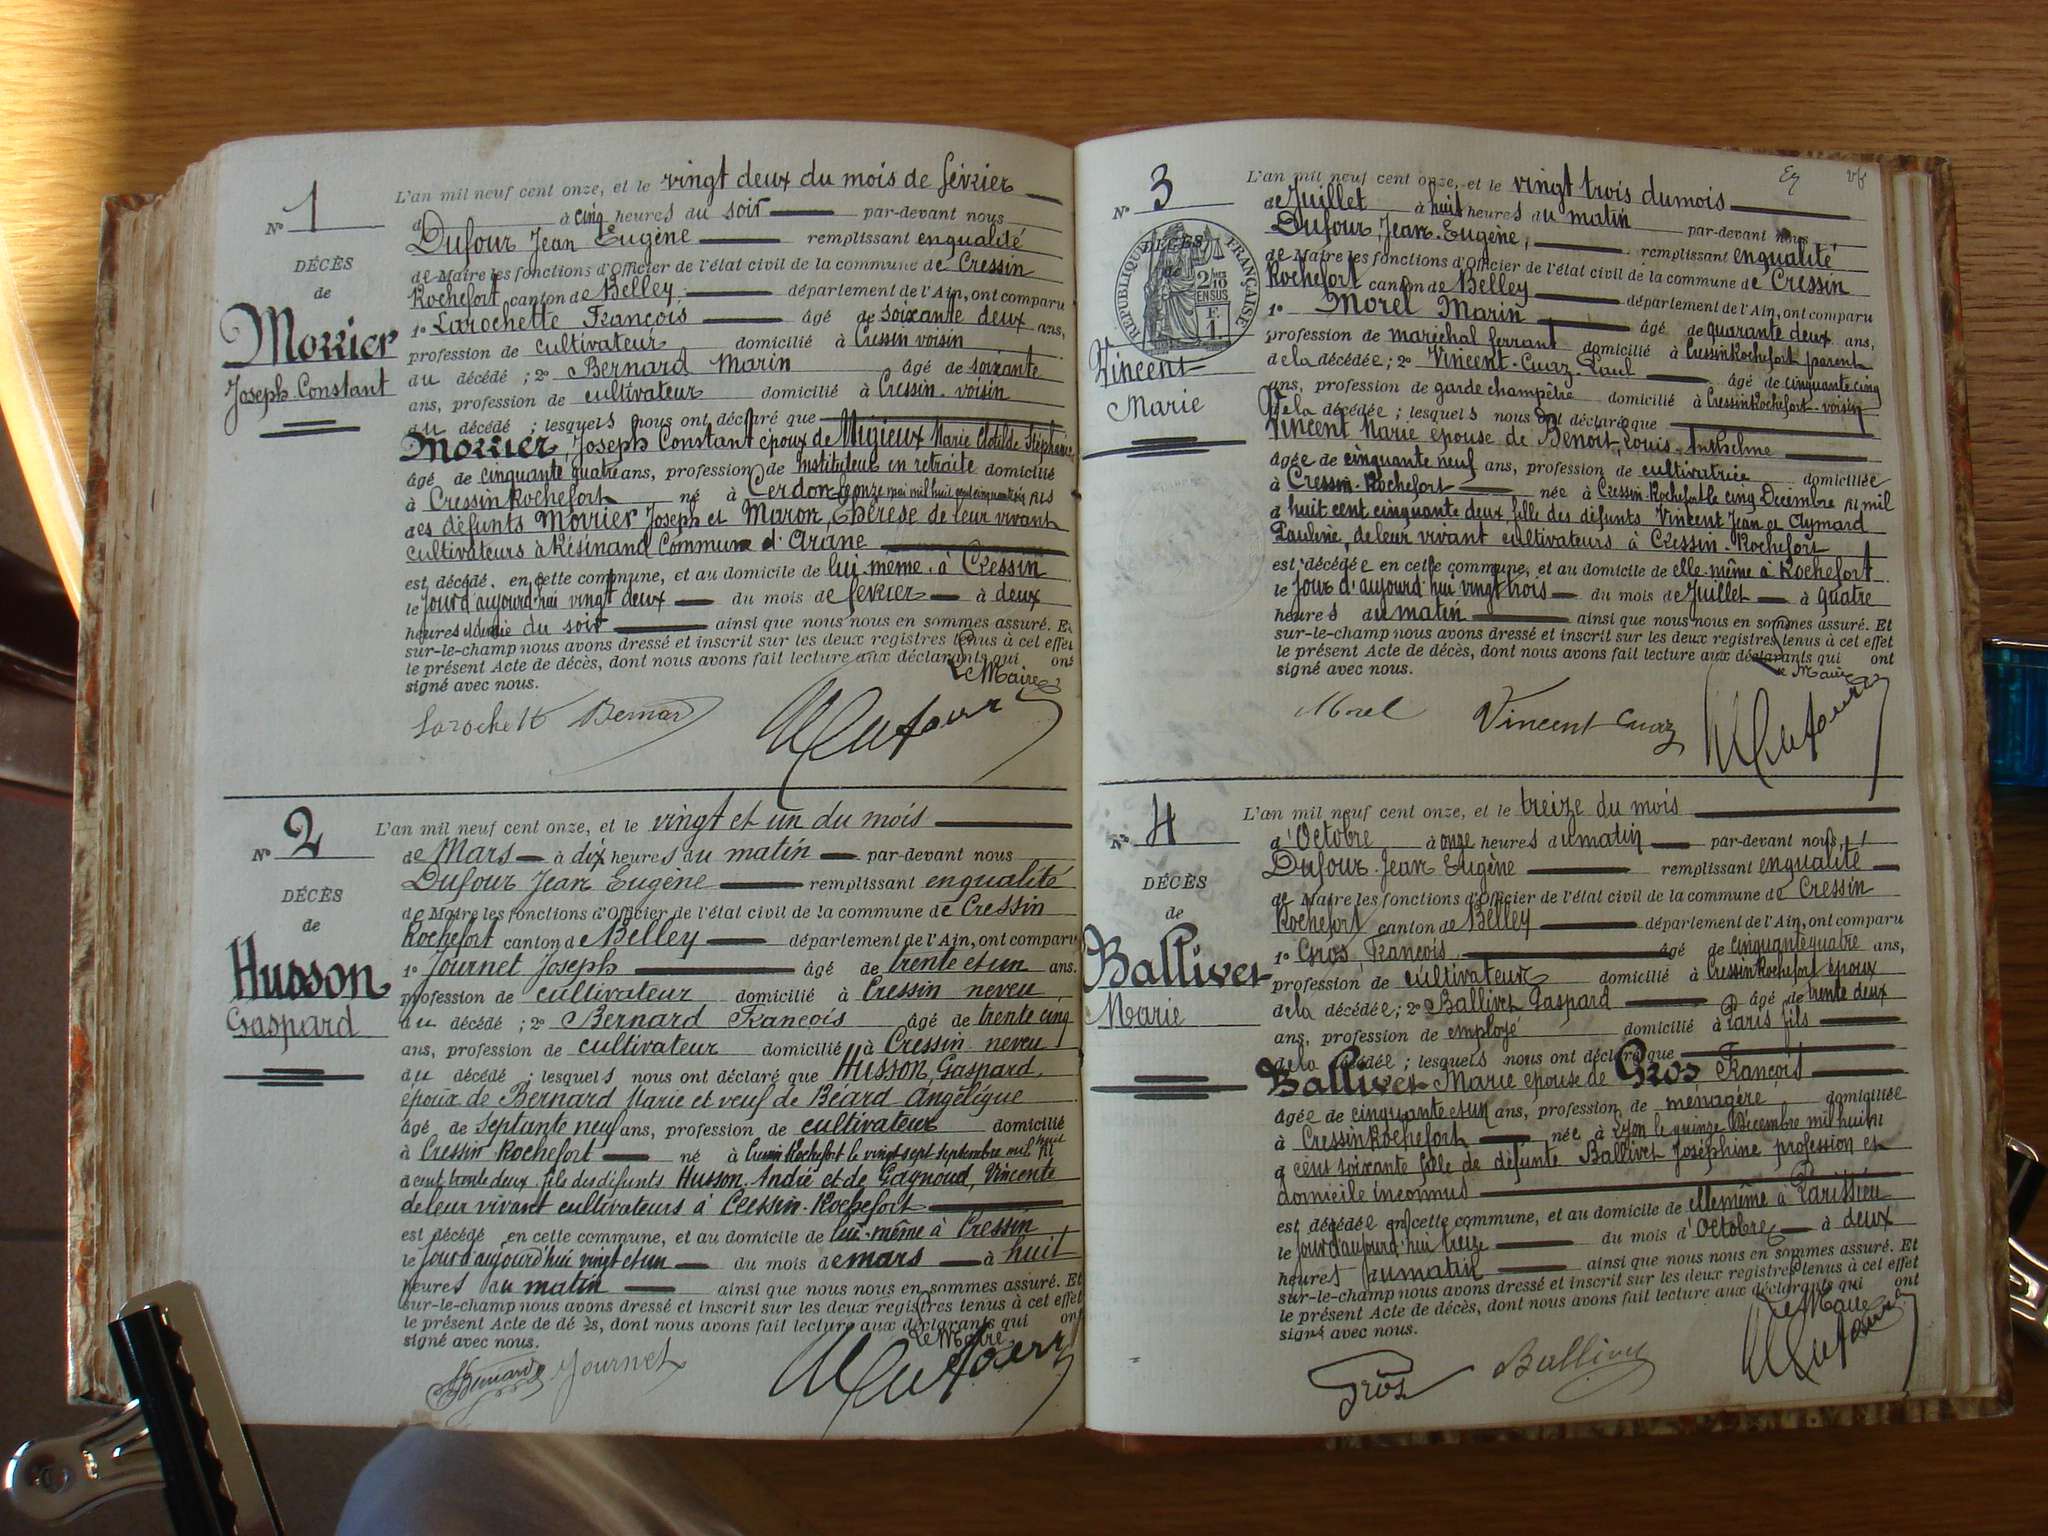 N° 1
DÉCÈS
de
Morrier
Joseph-Constant
L'an mil neuf cent onze, et le vingt deux du mois de février
d à cinq heures du soir par-devant nous
Dufour Jean Eugène remplissant en qualité
de Maire les fonctions d'Officier de l'état civil de la commune de Cressin
Rochefort, canton de Belley département de l'Ain, ont comparu
1° Larochette François âgé de soixante deux ans,
profession de cultivateur domicilié à Cressin voisin
du décédé ; 2° Bernard Marin âgé de soixante
ans, profession de cultivateur domicilié à Cressin - voisin
du décédé ; lesquels nous ont déclaré que
Morrier, Joseph Constant époux de Migieux Marie Clotilde Stéphanie
âgé de cinquante quatre ans, profession de Instituteur en retraite domicilié
à Cressin Rochefort né à Cerdon le onze mai mil huit cent cinquante six fils
des défunts Morrier Joseph et Maron, Thérèse de leur vivant
cultivateurs à Résinand Commune d'Arane
est décédé en cette commune, et au domicile de lui-même à Cressin
le jour d'aujourd'hui vingt deux du mois de février à deux
heures et demie du soir ainsi que nous nous en sommes assuré. Et
sur-le-champ nous avons dressé et inscrit sur les deux registres tenus à cet effet
le présent Acte de décès, dont nous avons fait lecture aux déclarants qui ont
signé avec nous. Le Maire
Larochett Bernard Dufour
N° 2
DÉCÈS
de
Husson
Gaspard
L'an mil neuf cent onze, et le vingt et un du mois
de Mars à dix heures du matin par-devant nous
Dufour Jean Eugène remplissant en qualité
de Maire les fonctions d'Officier de l'état civil de la commune de Cressin
Rochefort canton de Belley département de l'Ain, ont comparu
1° Journet Joseph âgé de trente et un ans.
profession de cultivateur domicilié à Cressin neveu
du décédé ; 2° Bernard François âgé de trente cinq
ans, profession de cultivateur domicilié à Cressin neveu
du décédé ; lesquels nous ont déclaré que Husson, Gaspard,
époux de Bernard Marie et veuf de Béard Angélique
âgé de septante neuf ans, profession de cultivateur domicilié
à Cressin Rochefort né à Cressin Rochefort le vingt sept septembre mil huit
cent trente deux fils des défunts Husson, André et de Gagnoud, Vincente
de leur vivant cultivateurs à Cressin-Rochefort
est décédé en cette commune, et au domicile de lui-même à Cressin
le jour d'aujourd'hui vingt et un du mois de mars à huit
heures du matin ainsi que nous nous en sommes assuré. Et
sur-le-champ nous avons dressé et inscrit sur les deux registres tenus à cet effet
le présent Acte de décès, dont nous avons fait lecture aux déclarants qui ont
signé avec nous. Le Maire
Bernard Journet Dufour
N° 3
DÉCÈS
de
RÉPUBLIQUE FRANÇAISE
2/10 EN SUS
Vincent
Marie
L'an mil neuf cent onze, et le vingt trois du mois
de Juillet à huit heures du matin par-devant nous
Dufour, Jean-Eugène, remplissant en qualité
de Maire les fonctions d'Officier de l'état civil de la commune de Cressin
Rochefort canton de Belley département de l'Ain, ont comparu
1° Morel Marin âgé de quarante deux ans,
profession de maréchal ferrant domicilié à Cressin Rochefort parent
de la décédée ; 2° Vincent-Cuaz-Paul âgé de cinquante cinq
ans, profession de garde champêtre domicilié à Cressin Rochefort-voisin
de la décédée ; lesquels nous ont déclaré que
Vincent Marie épouse de Benoit, Louis-Anthelme
âgée de cinquante neuf ans, profession de cultivatrice domiciliée
à Cressin-Rochefort née à Cressin-Rochefort le cinq Décembre mil
huit cent cinquante deux, fille des défunts Vincent Jean et Aymard
Pauline, de leur vivant cultivateurs à Cressin-Rochefort
est décédée en cette commune, et au domicile de elle-même à Rochefort
le jour d'aujourd'hui vingt trois du mois de Juillet à quatre
heures du matin ainsi que nous nous en sommes assuré. Et
sur-le-champ nous avons dressé et inscrit sur les deux registres tenus à cet effet
le présent Acte de décès, dont nous avons fait lecture aux déclarants qui ont
signé avec nous. Le Maire
Morel Vincent Cuaz Dufour
N° 4
DÉCÈS
de
Ballivet
Marie
L'an mil neuf cent onze, et le treize du mois
d'Octobre à onze heures du matin par-devant nous,
Dufour Jean Eugène remplissant en qualité
de Maire les fonctions d'Officier de l'état civil de la commune de Cressin
Rochefort canton de Belley département de l'Ain, ont comparu
1° Gros, François âgé de cinquante quatre ans,
profession de cultivateur domicilié à Cressin Rochefort époux
de la décédée ; 2° Ballivet Gaspard âgé de trente deux
ans, profession de employé domicilié à Paris fils
de la décédée ; lesquels nous ont déclaré que
Ballivet Marie épouse de Gros François
âgée de cinquante et un ans, profession de ménagère domiciliée
à Cressin Rochefort née à Lyon le quinze Décembre mil huit
cent soixante fille de défunte Ballivet Joséphine profession et
domicile inconnus
est décédée en cette commune, et au domicile de elle même à Parissieu
le jour d'aujourd'hui treize du mois d'Octobre à deux
heures du matin ainsi que nous nous en sommes assuré. Et
sur-le-champ nous avons dressé et inscrit sur les deux registres tenus à cet effet
le présent Acte de décès, dont nous avons fait lecture aux déclarants qui ont
signé avec nous. Le Maire
Gros Ballivet Dufour